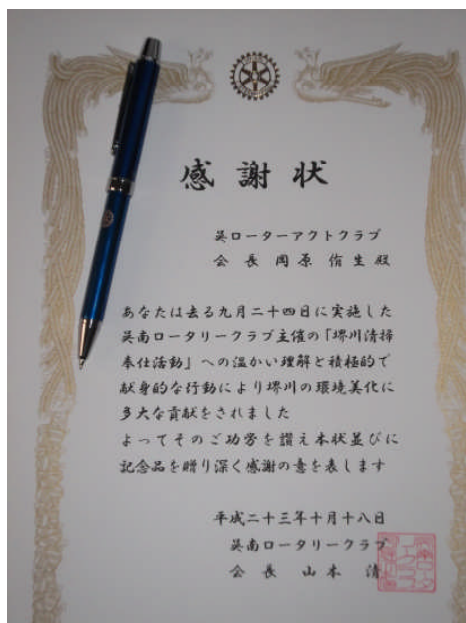 感謝状
呉ローターアクトクラブ
会長 岡原侑生殿
あなたは去る九月二十四日に実施した
呉南ロータリークラブ主催の「堺川清掃
奉仕活動」への温かい理解と積極的で
献身的な行動により堺川の環境美化に
多大な貢献をされました
よってそのご功労を讃え本状並びに
記念品を贈り深く感謝の意を表します
平成二十三年十月十八日
呉南ロータリークラブ
会長 山本清